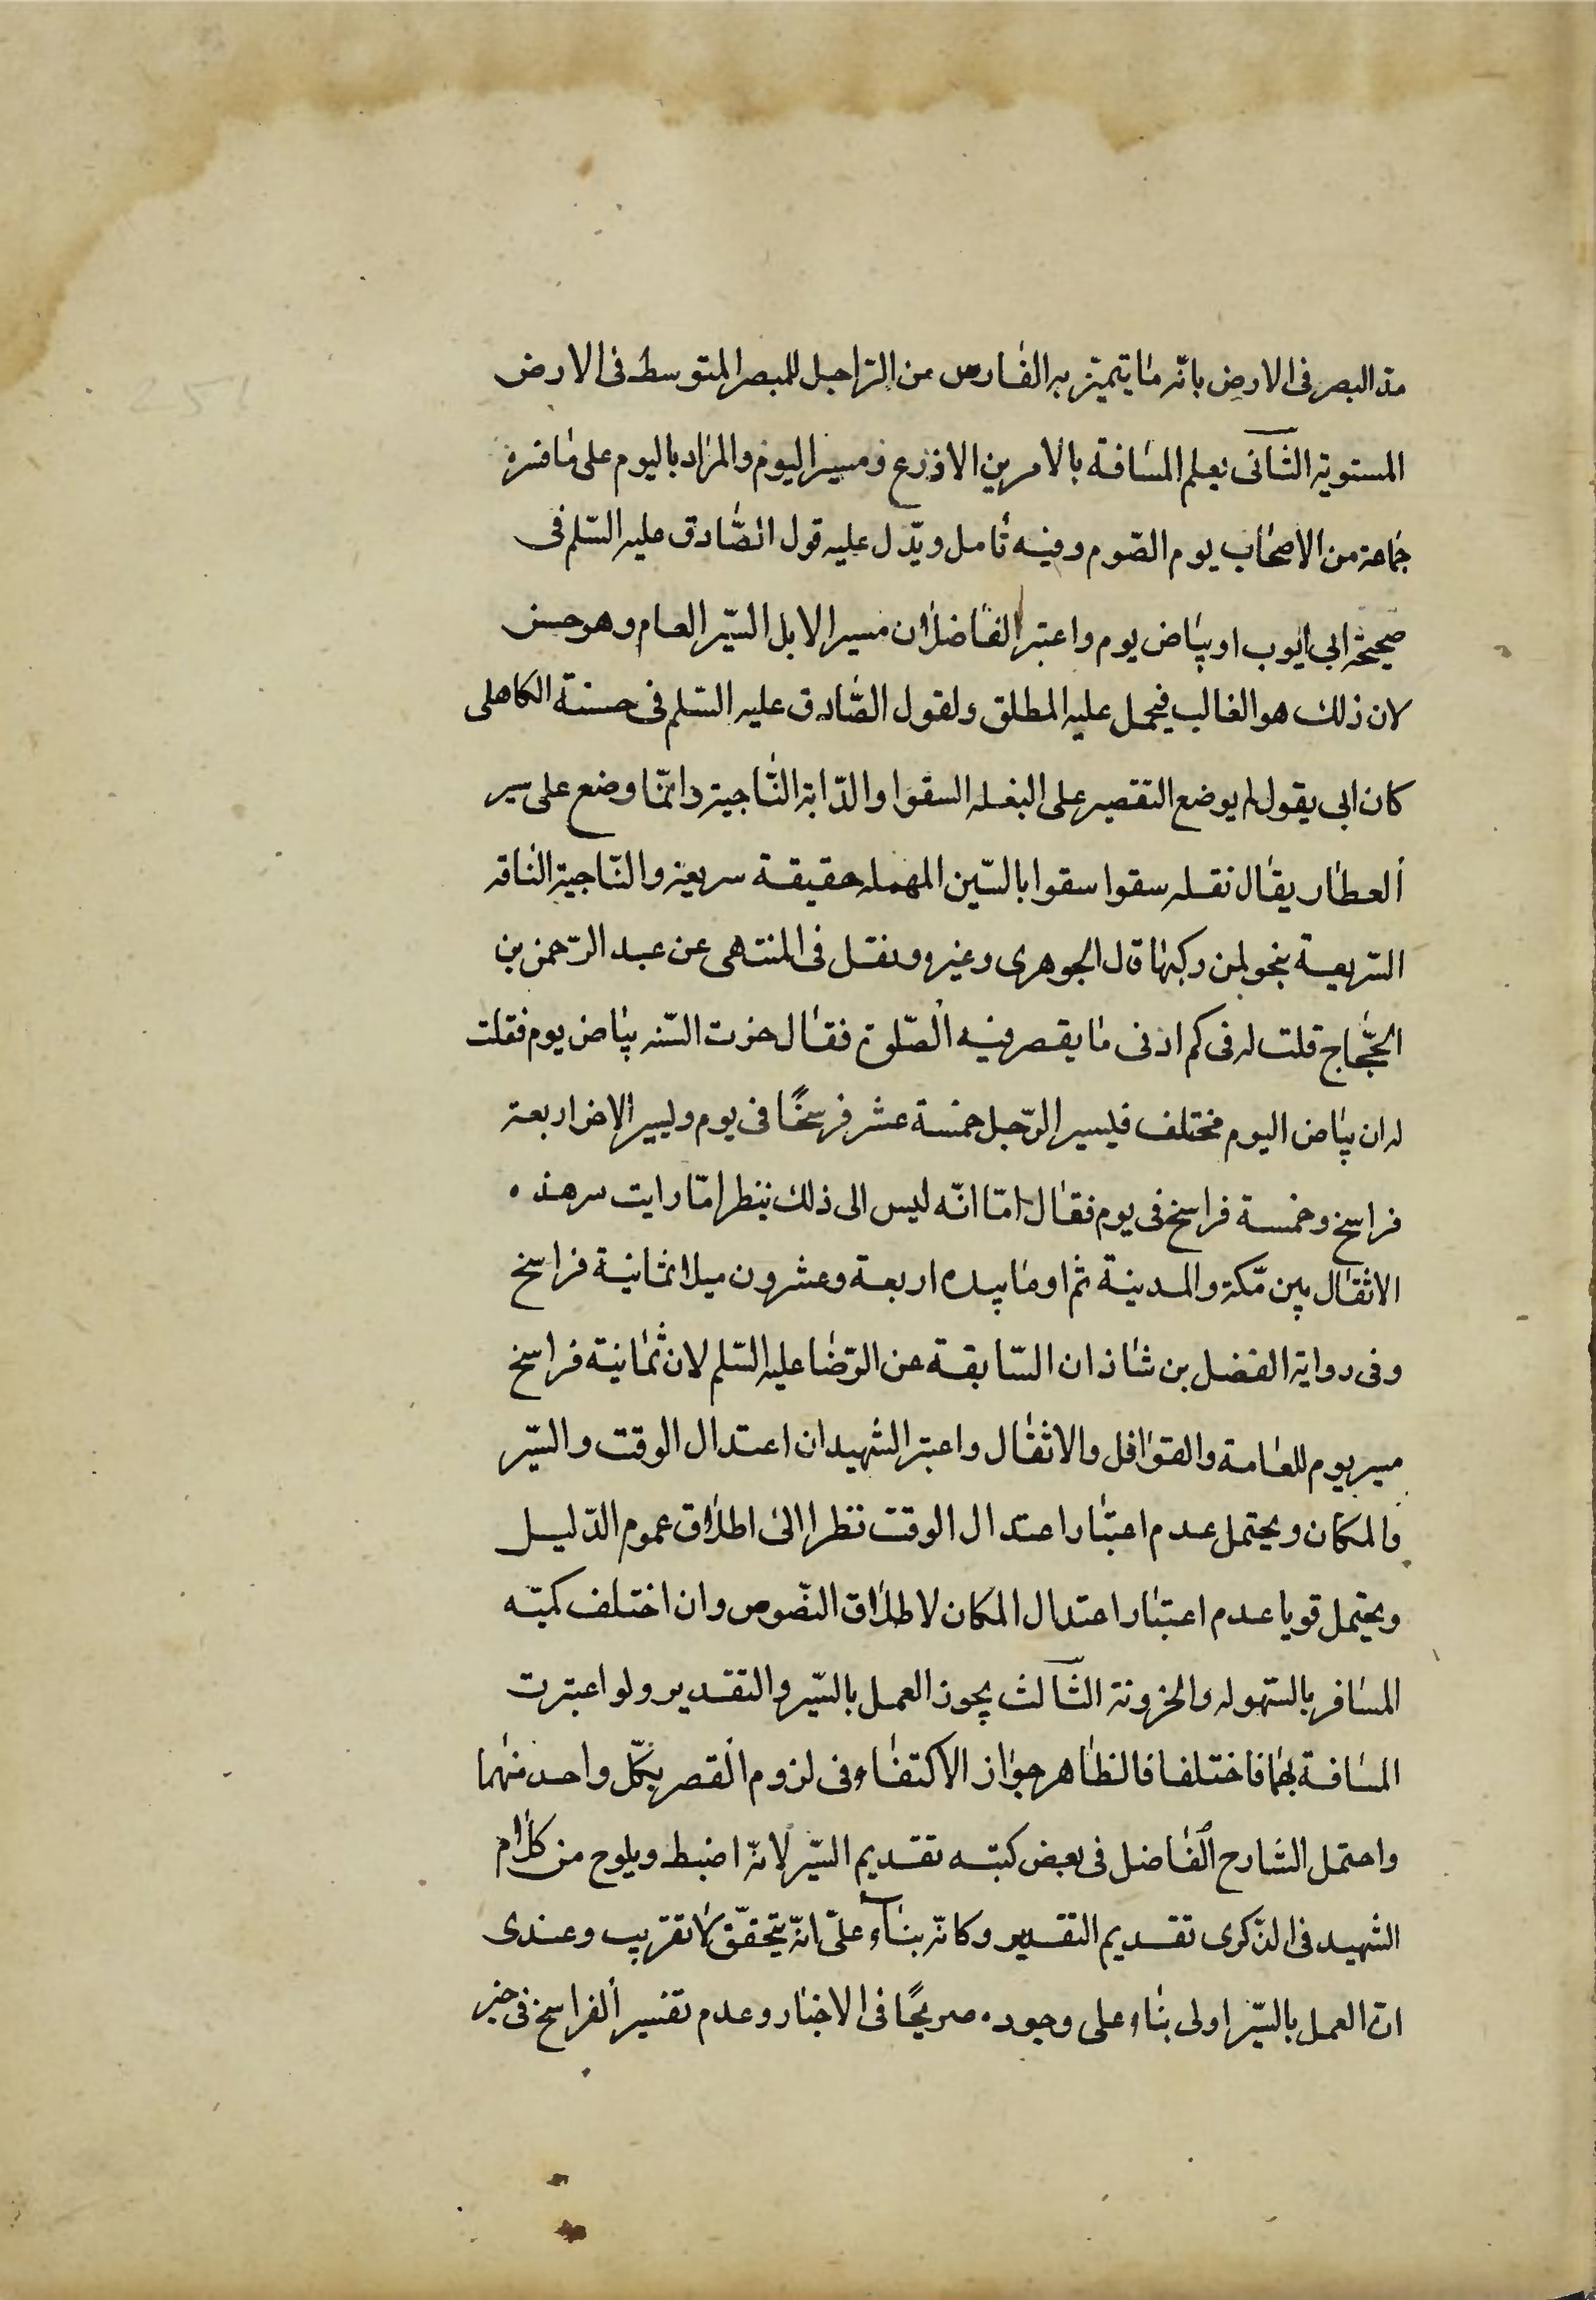 مد البصر فى الارض بانّه ما يتميّز به الفارس من الرّاجل للمبصر المتوسط فى الارض
المستوية الثانى يعلم المسافة بالامرين الاذرع و مسير اليوم والمراد باليوم على ما فسّره
جماعة من الاصحاب يوم الصّوم وفيه تأمل ويدّل عليه قول الصّادق عليه السّلم فى
صحيحة ابى ايوب او بياض يوم واعتبر الفاضلان مسير الابل السّير العام وهو حسن
لان ذلك هو الغالب فيحمل عليه المطلق ولقول الصّادق عليه السّلم فى حسنة الكاهلى
كان ابى يقول لم يوضع التقصير على البغلة السقوا والدّابة النّاجية وانمّا وضع على سير
العطار يقال نقله سقوا سقوا بالسّين المهمله حقيقة سريعة والنّاجية الناقه
السّريعة ينجو لمن ركبها قال الجوهرى وغيره ونقل فى المنتهى عن عبد الرّحمن بن
الحجّاج قلت له فى كم ادنى ما يقصر فيه الصّلوة فقال جرت السّنه بياض يوم فقلت
له ان بياض اليوم مختلف فليسير الرّجل خمسة عشر فرسخًا فى يوم وليسير الاخر اربعة
فراسخ وخمسة فراسخ فى يوم فقال امّا انّه ليس الى ذلك ينظر امّا رايت سر هذه
الاثقال بين مكّة والمدينة ثم اوما بيده اربعة وعشرون ميلا ثمانية فراسخ
وفى رواية الفضل بن شاذان السّابقة عن الرّضا عليه السّلم لان ثمانية فراسخ
مسير يوم للعامة والقوافل والاثقال واعتبر الشهيدان اعتدال الوقت والسّير
والمكان ويحتمل عدم اعتبار اعتدال الوقت نظرا الى اطلاق عموم الدّليل
ويحتمل قويا عدم اعتبار اعتدال المكان لاطلاق النصّوص وان اختلف كميّه
المسافر بالسّهوله والحزونة الثالث يجوز العمل بالسّير والتقدير ولو اعتبرت
المسافة بهما فاختلفا فالظاهر جواز الاكتفاء وفى لزوم القصر بكلّ واحد منهما
واحتمل الشارح الفاضل فى بعض كتبه تقديم السّير لانّه اضبط ويلوح من كلام
الشهيد فى الذّكرى تقديم التقدير وكانّه بناء علىّ انّه يتحقّق لا تقريب وعندى
ان العمل بالسّير اولى بناء على وجوده صريحًا فى الاخبار وعدم تفسير الفراسخ فى خبر